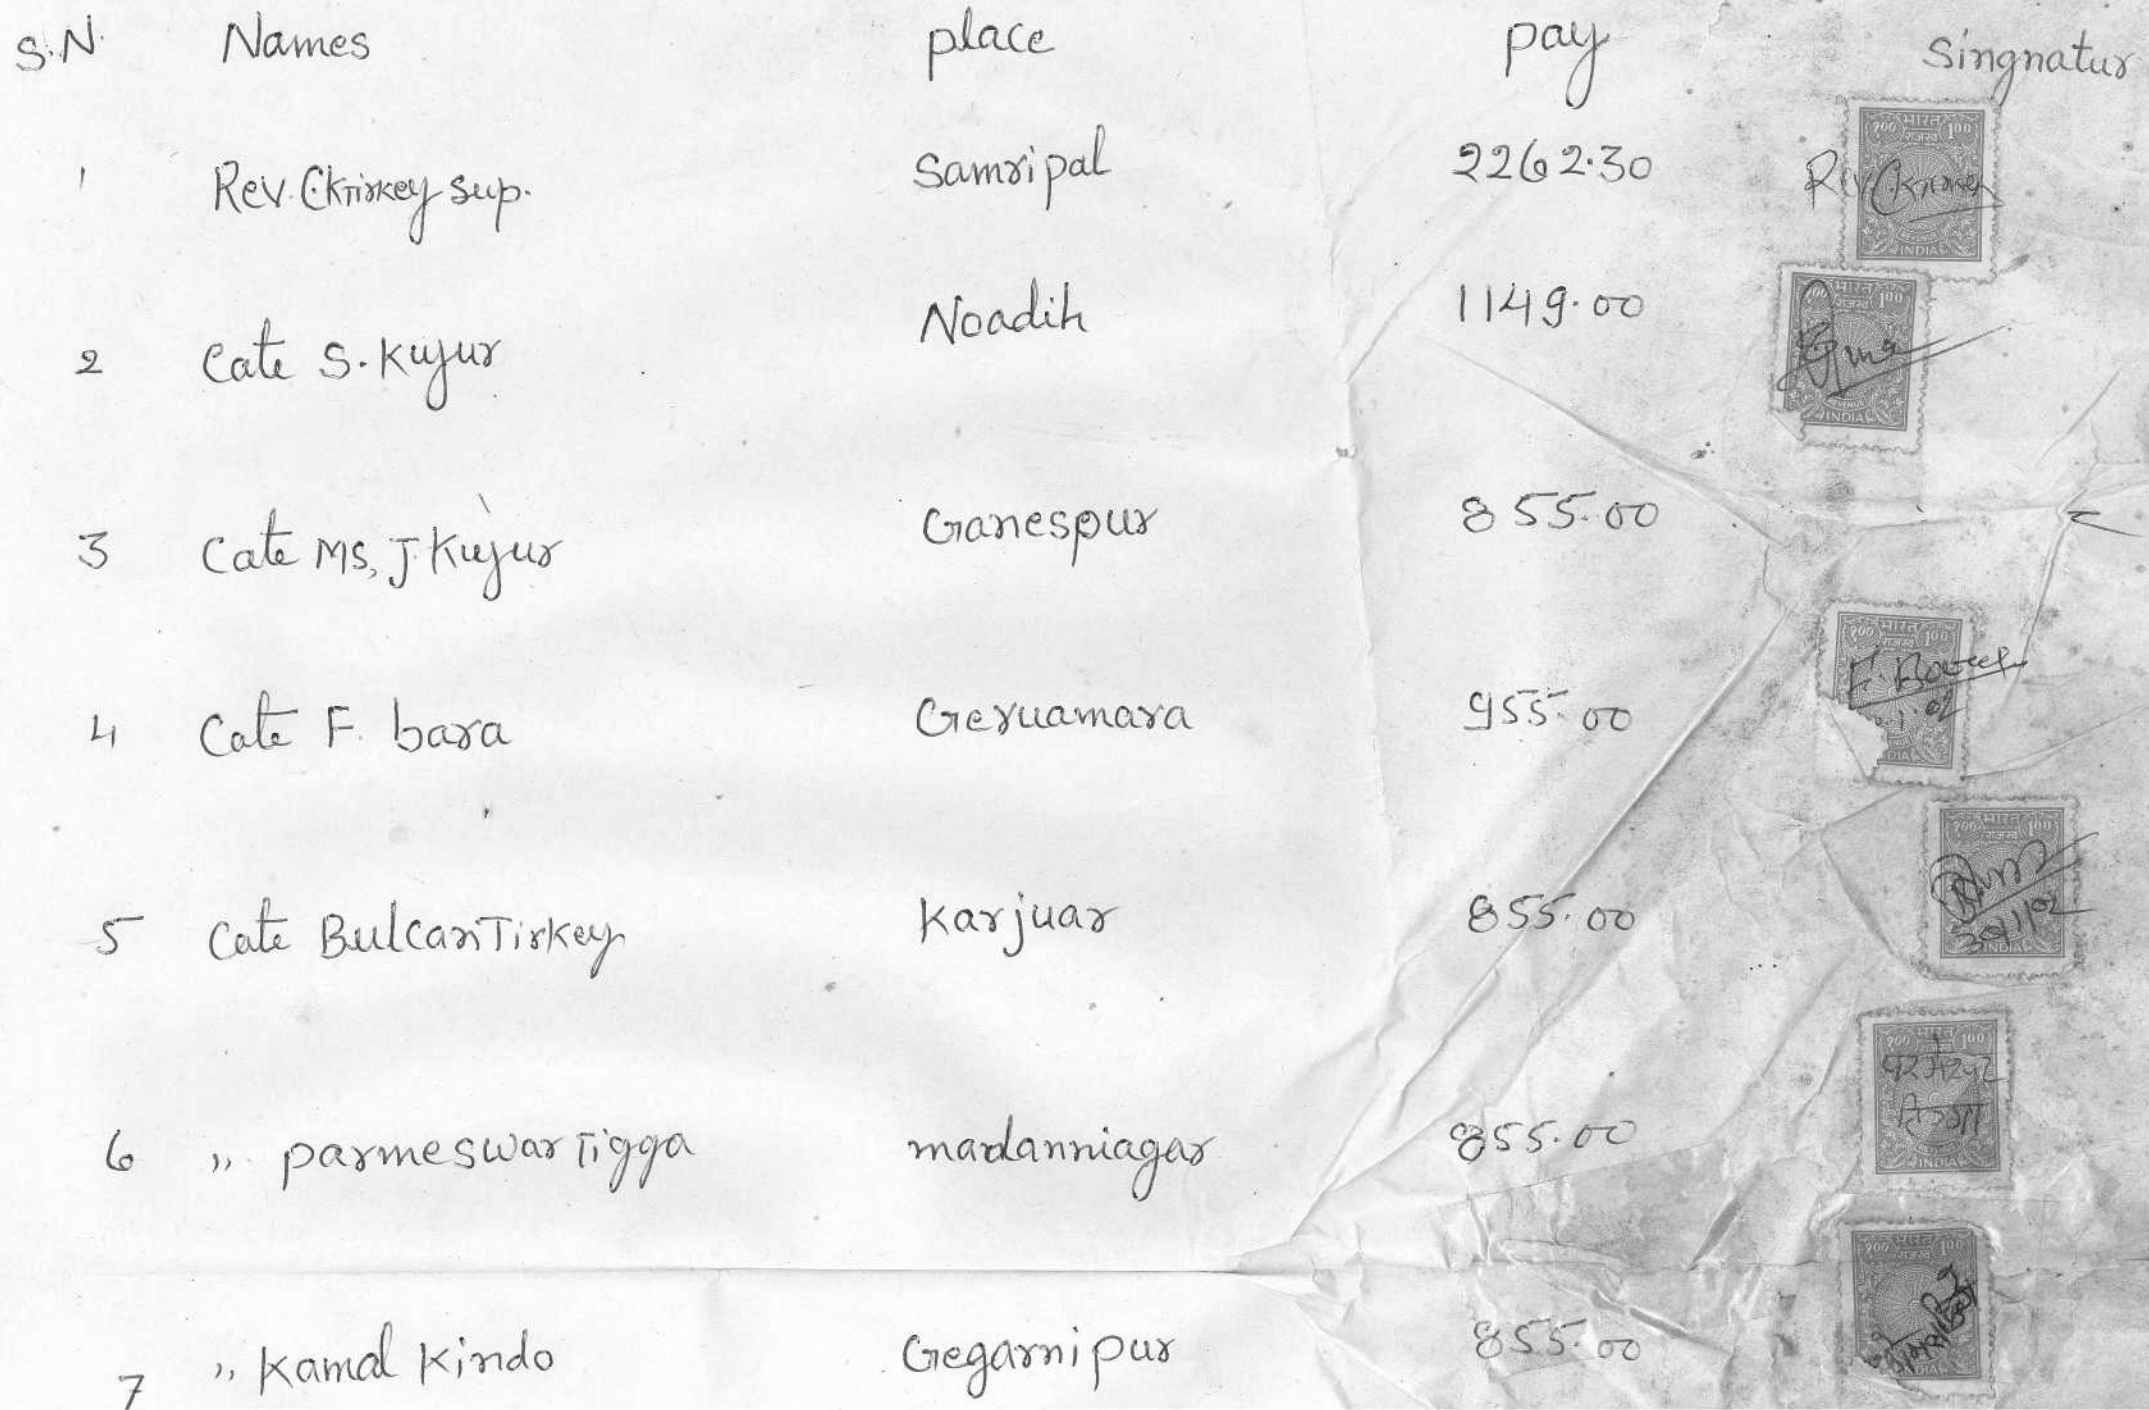 S.N. Names place pay Singnatur
1 Rev. CKTirkey sup. Samripal 2262.30 Rev. CKTirkey
2 Cate S. Kujur Noadih 1149.00
3 Cate Ms, J. Kujur Ganespur 855.00
4 Cate F. bara Geruamara 955.00
5 Cate Bulcan Tirkey Karjuar 855.00 30/1/02
6 ,, parmeswar Tigga madanniagar 855.00 परमेश्वर तिग्गा
7 ,, Kamal Kindo Gegarnipur 855.00
१०० भारत 100
राजस्व
REVENUE
INDIA